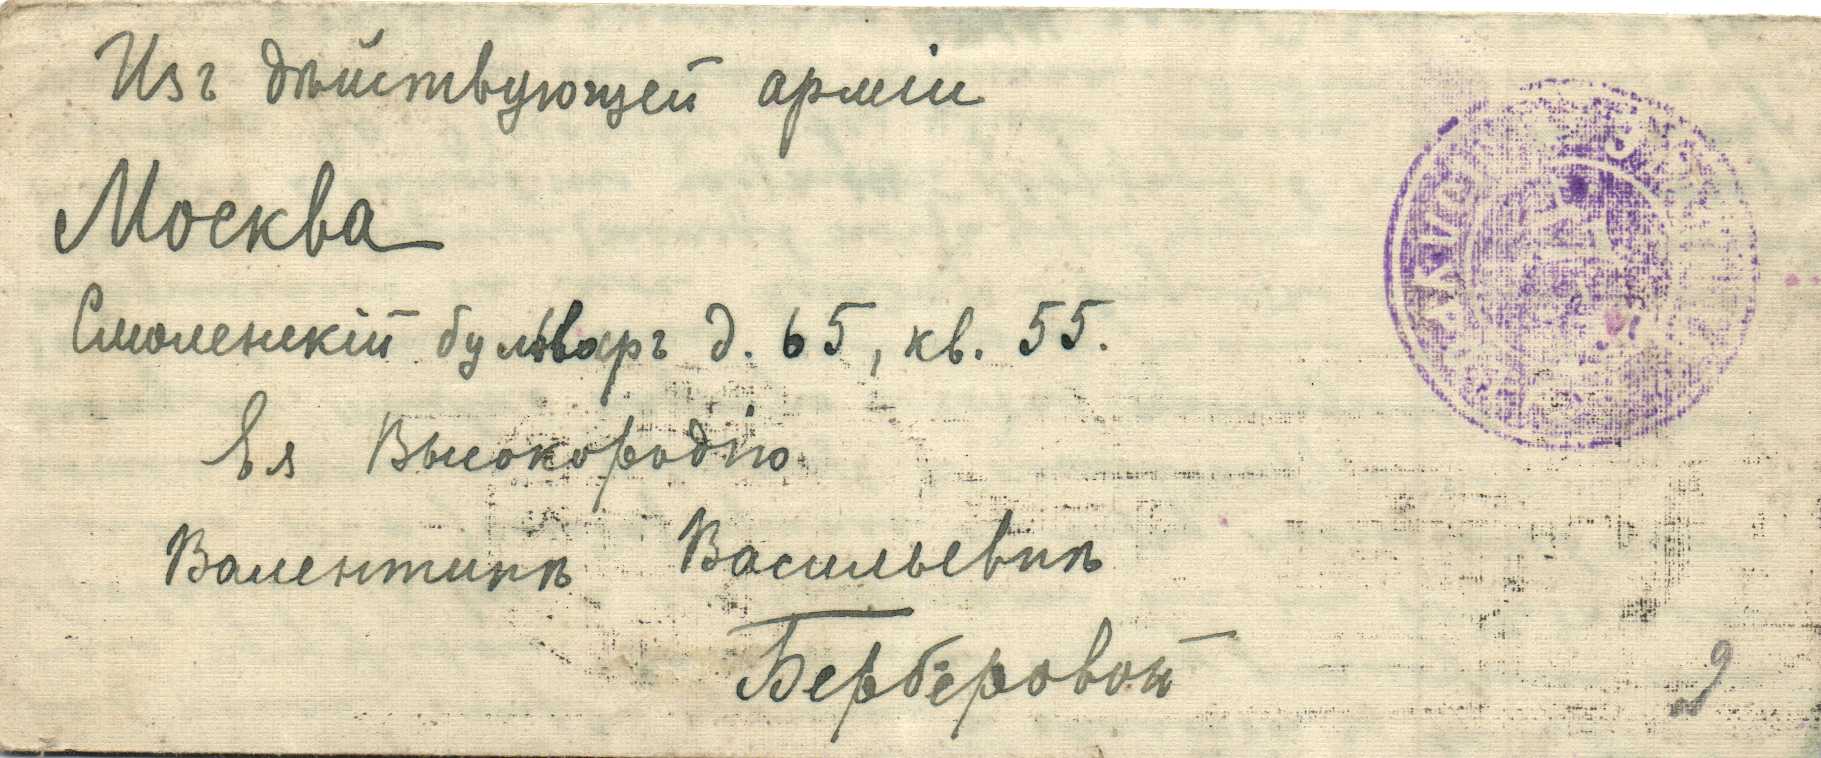 Изъ дѣйствующей арміи
Москва
Смоленскій бульваръ д. 65, кв. 55.
Ея Высокородію
Валентинѣ Васильевнѣ
Берберовой
9